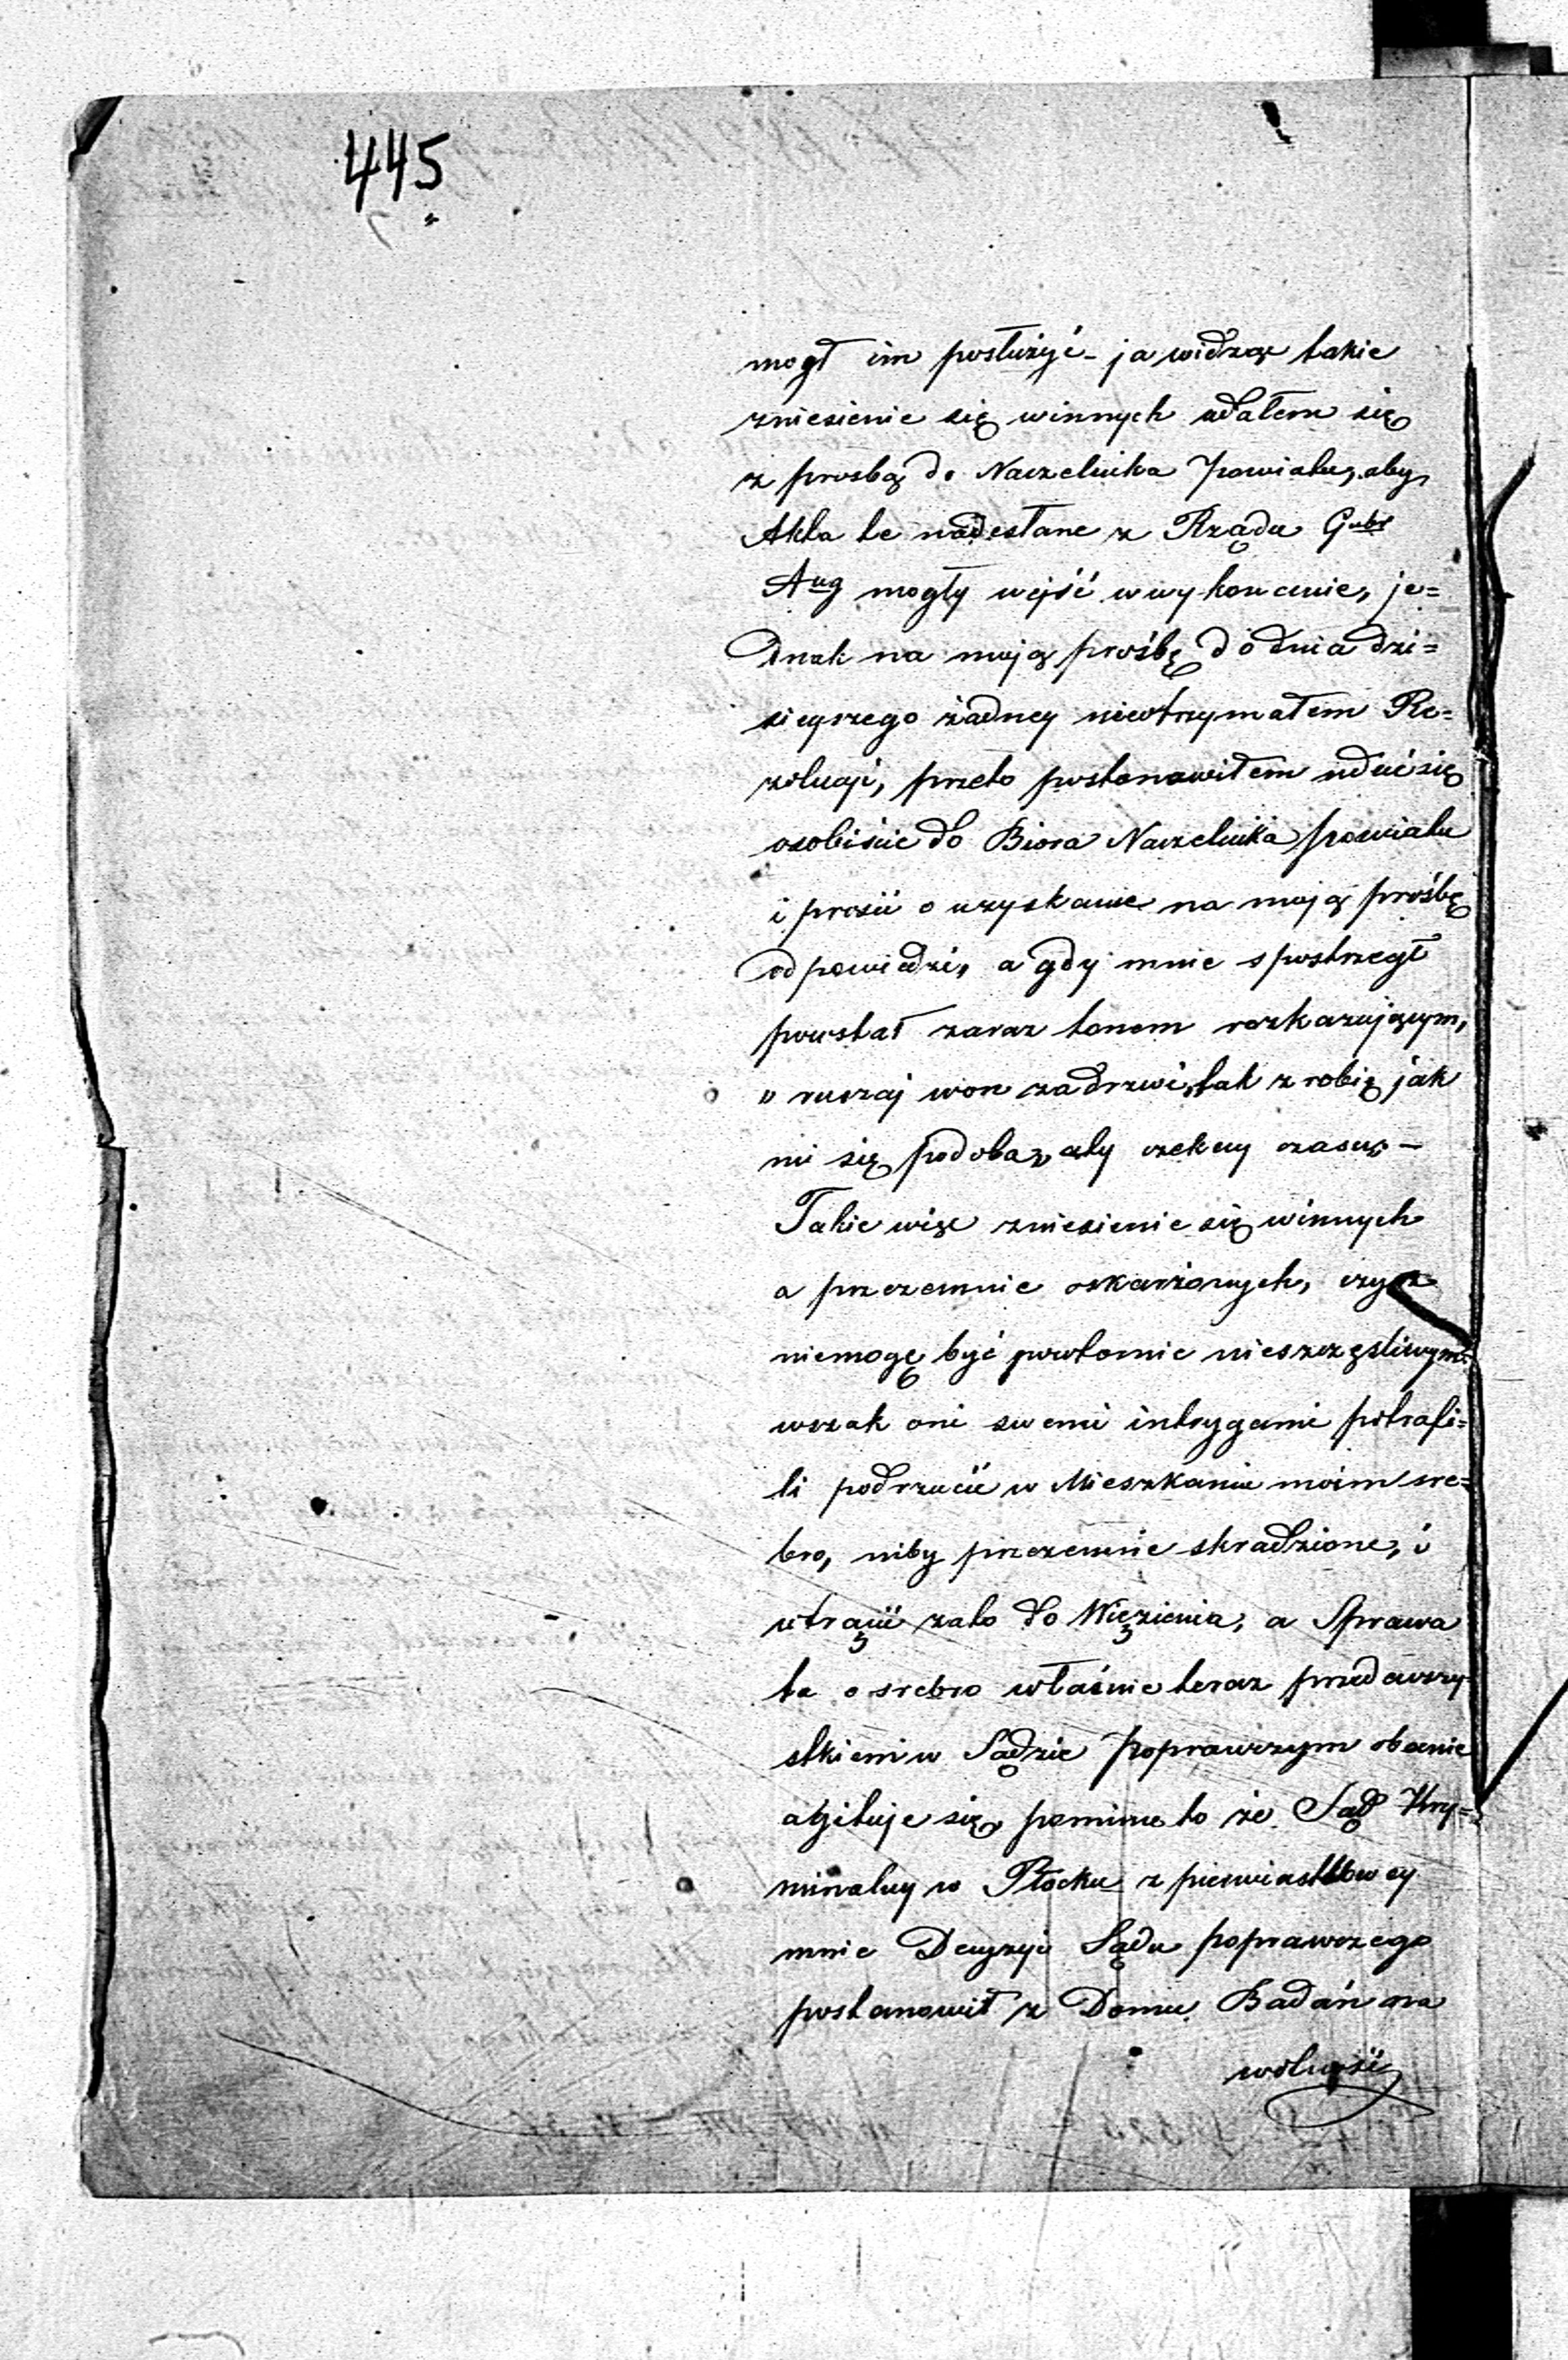 445
mogł im posłużyć – ja widząc takie
zniesienie się winnych udałem się
z prosbą do Naczelnika Powiatu, aby
Akta te nadesłane z Rządu Gube
Aug mogły wejść w wykonanie, je=
dnak na moją prośbę do dnia dzi=
siejszego żadney nieotrzymałem Re=
zolucji, przeto postanowiłem udać się
osobiście do Biora Naczelnika powiatu
i prosić o uzyskanie na moją prośbę
odpowiedzi, a gdy mnie spostrzegł
powstał zaraz tonem rozkazującym,
„ruszaj won za drzwi, tak zrobię jak
mi się podoba, aly czekay czasu; –
Takie więc zniesienie się winnych
a przezemnie oskarżonych, czyż
niemogę być powtornie nieszczęśliwym
wszak oni swemi intrygami potrafi=
li podrzucić w Mieszkaniu moim sre=
bro, niby przezemnie skradzione, i
wtrącić zato do Więzienia, a Sprawa
ta o srebro właśnie teraz przedewszy
stkiem w Sądzie poprawczym obecnie
agituje się, pomimo to że Sąd Kry=
minalny w Płocku z pierwiastkowey
mnie Decyzyi Sądu poprawczego
postanowił z Domu Badań